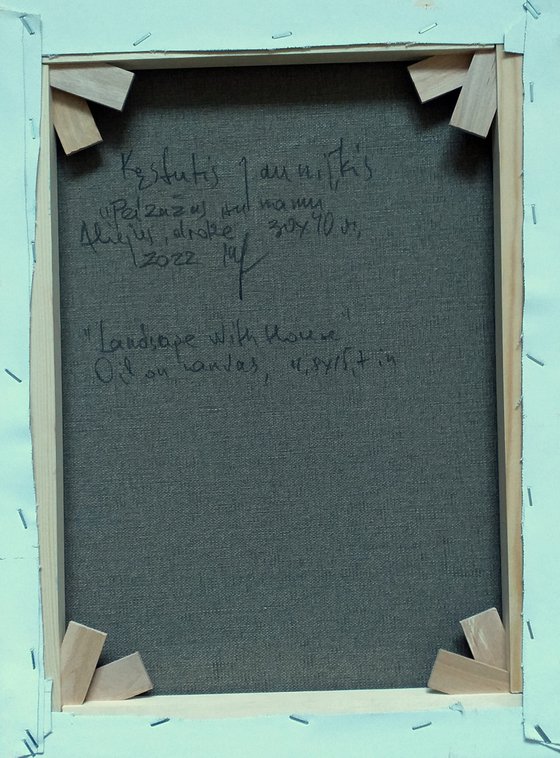 Kęstutis Jauniškis
"Peizažas su namu"
Aliejus, drobė, 30x40 cm,
2022
"Landsape with House"
Oil on canvas, 11,8x15,7 in